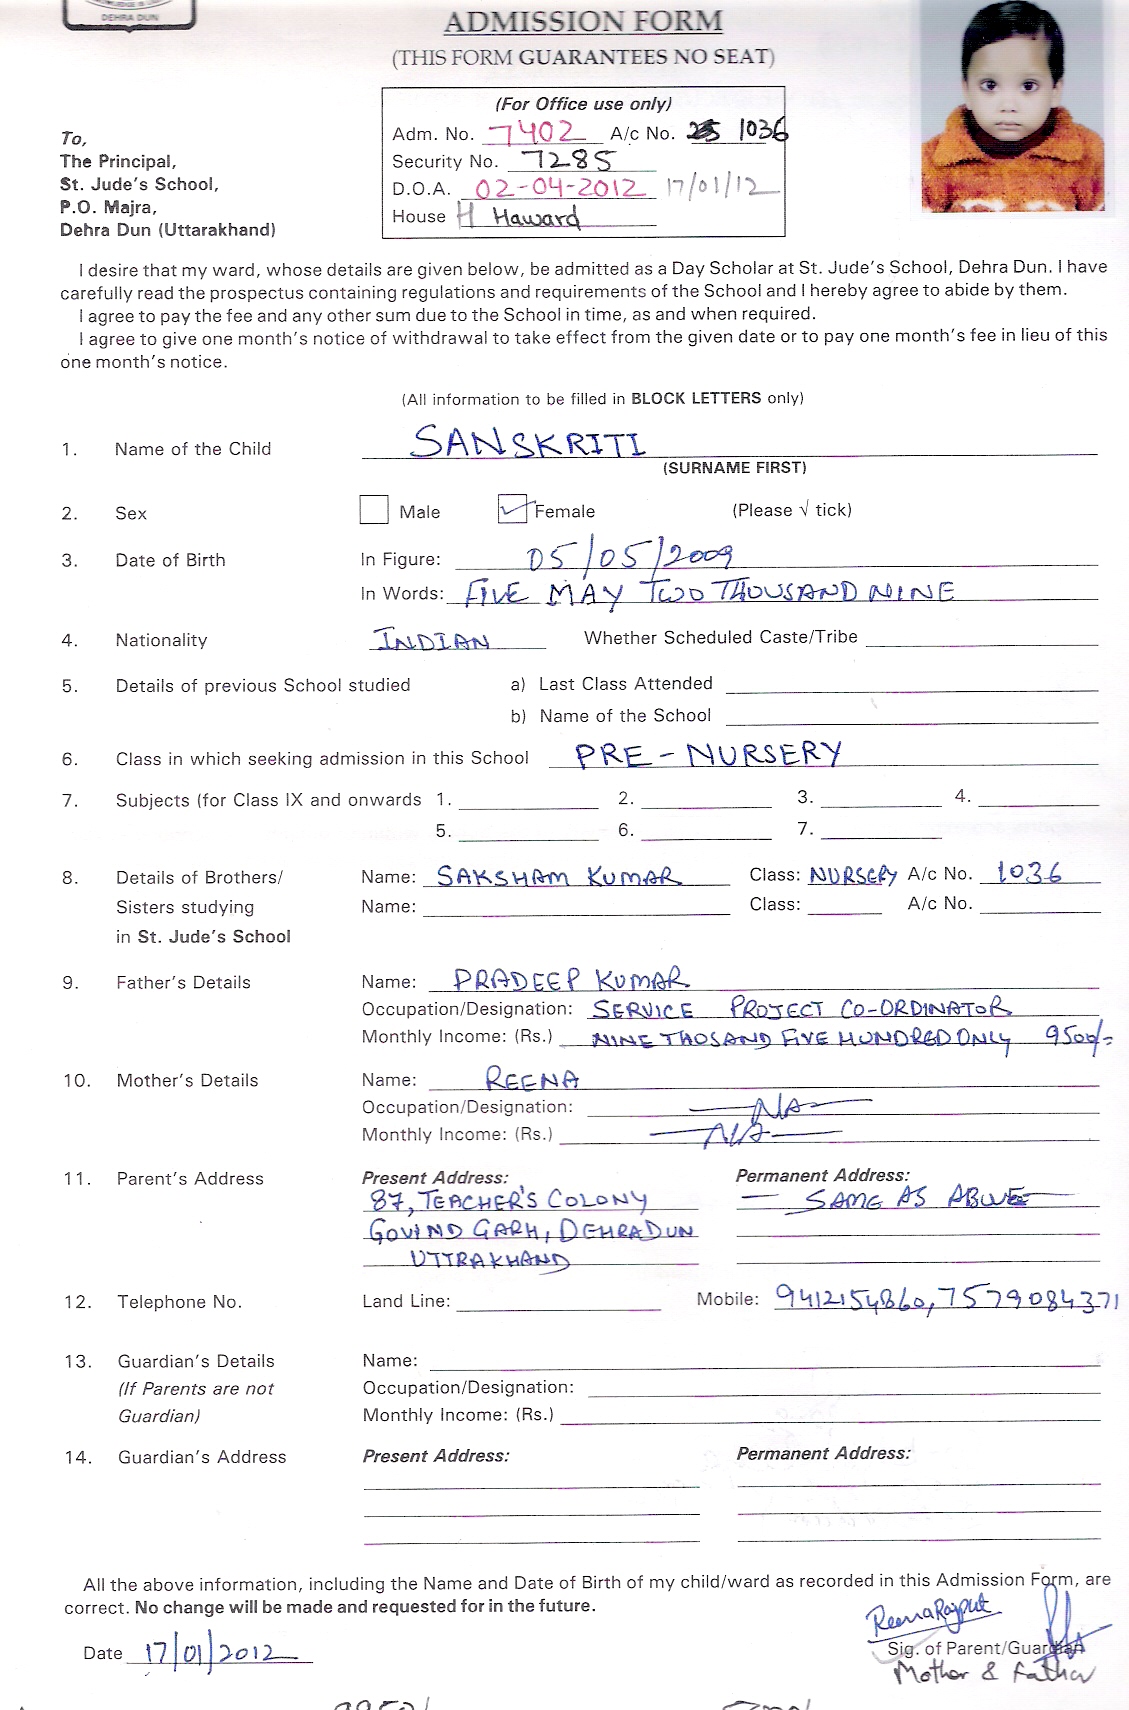 DEHRA DUN
ADMISSION FORM
(THIS FORM GUARANTEES NO SEAT)
(For Office use only)
Adm. No. 7402 A/c No. 1036
Security No. 7285
D.O.A. 02-04-2012 17/01/12
House H Haward
To,
The Principal,
St. Jude's School,
P.O. Majra,
Dehra Dun (Uttarakhand)
I desire that my ward, whose details are given below, be admitted as a Day Scholar at St. Jude's School, Dehra Dun. I have
carefully read the prospectus containing regulations and requirements of the School and I hereby agree to abide by them.
I agree to pay the fee and any other sum due to the School in time, as and when required.
I agree to give one month's notice of withdrawal to take effect from the given date or to pay one month's fee in lieu of this
one month's notice.
(All information to be filled in BLOCK LETTERS only)
1. Name of the Child SANSKRITI
(SURNAME FIRST)
2. Sex Male Female (Please √ tick)
3. Date of Birth In Figure: 05/05/2009
In Words: FIVE MAY TWO THOUSAND NINE
4. Nationality INDIAN Whether Scheduled Caste/Tribe
5. Details of previous School studied a) Last Class Attended
b) Name of the School
6. Class in which seeking admission in this School PRE-NURSERY
7. Subjects (for Class IX and onwards 1. 2. 3. 4.
5. 6. 7.
8. Details of Brothers/ Name: SAKSHAM KUMAR Class: NURSERY A/c No. 1036
Sisters studying Name: Class: A/c No.
in St. Jude's School
9. Father's Details Name: PRADEEP KUMAR
Occupation/Designation: SERVICE PROJECT CO-ORDINATOR
Monthly Income: (Rs.) NINE THOSAND FIVE HUNDRED ONLY 9500/-
10. Mother's Details Name: REENA
Occupation/Designation: NA
Monthly Income: (Rs.) NA
11. Parent's Address Present Address: Permanent Address:
87, TEACHER'S COLONY SAME AS ABOVE
GOVIND GARH, DEHRADUN
UTTRAKHAND
12. Telephone No. Land Line: Mobile: 9412154860, 7579084371
13. Guardian's Details Name:
(If Parents are not Occupation/Designation:
Guardian) Monthly Income: (Rs.)
14. Guardian's Address Present Address: Permanent Address:
All the above information, including the Name and Date of Birth of my child/ward as recorded in this Admission Form, are
correct. No change will be made and requested for in the future.
Reena Rajput
Date 17/01/2012 Sig. of Parent/Guardian
Mother & Father